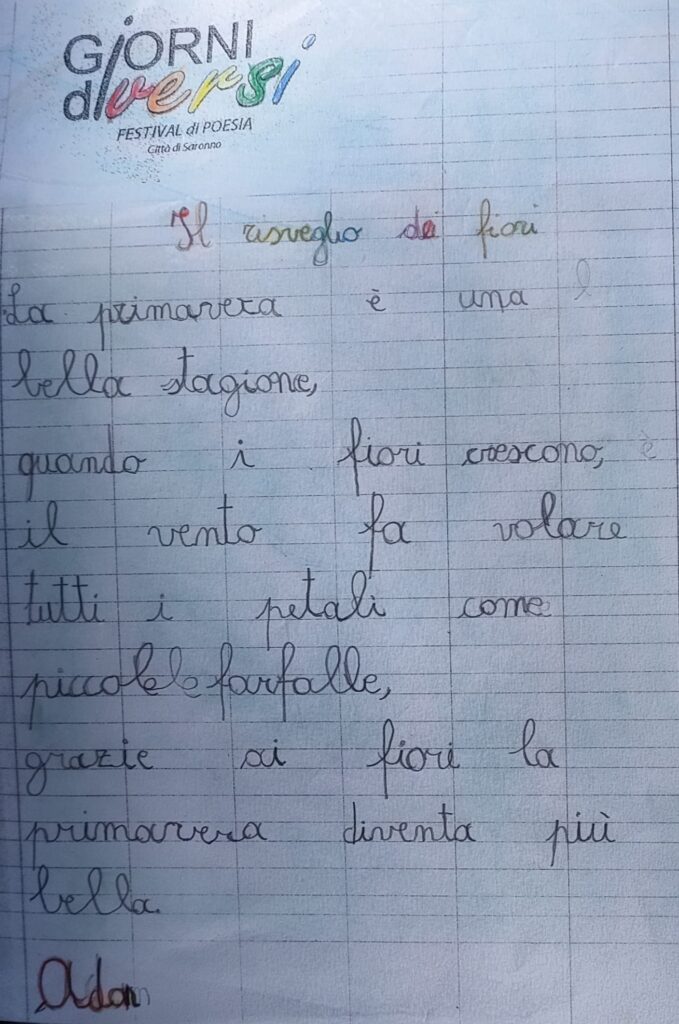 GiORNI
diversi
FESTIVAL di POESIA
Città di Saronno
Il risveglio dei fiori
La primavera è una
bella stagione,
quando i fiori crescono,
il vento fa volare
tutti i petali come
piccole farfalle,
grazie ai fiori la
primavera diventa più
bella.
Adam